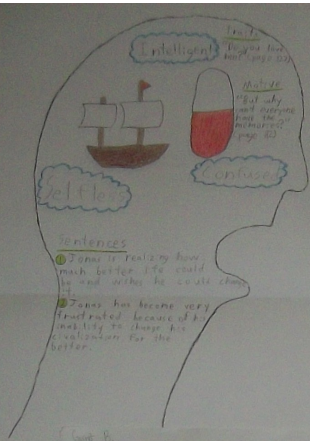 Traits
Intelligent
"Do you love
me?" (page
Motive
"But why
can't everyone
have the
memories?"
page
Confused
Selfless
Sentences
① Jonas is realizing how
much better life could
be and wishes he could change
it.
② Jonas has become very
frustrated because of his
inability to change his
civilization for the
better.